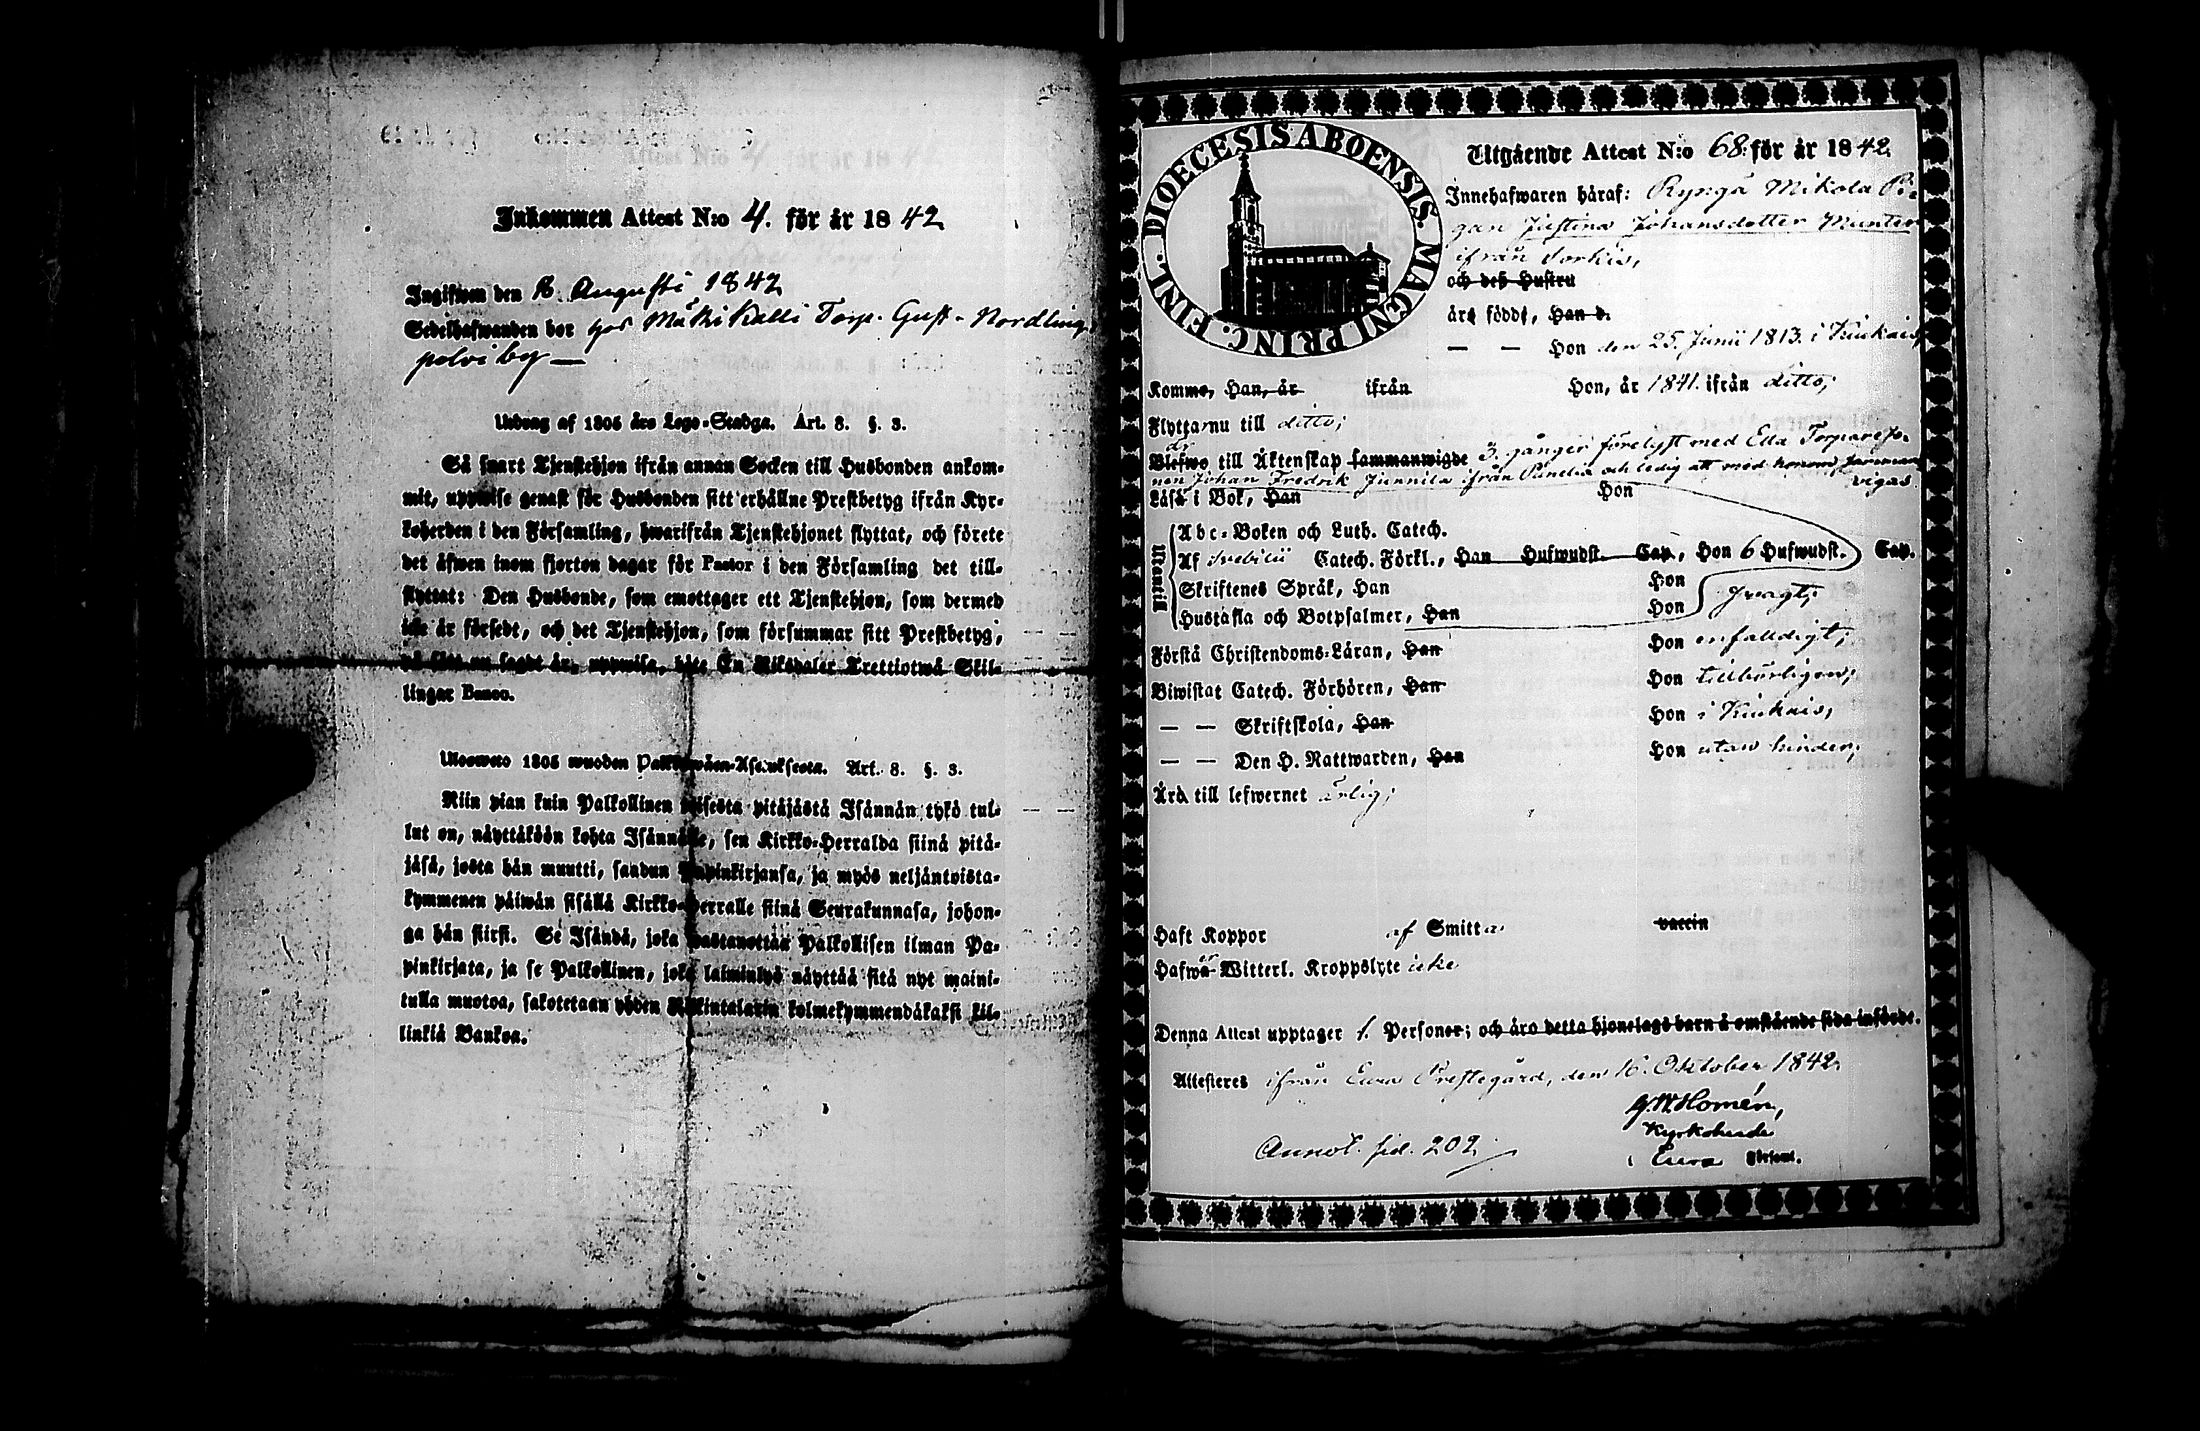 Inkommen Attest N:o 4. för år 1842
Ingifwen den 16. Augusti 1842
Sedelhafwanden bor hos Mäki Kalli Torp. Gust. Nordling
polvi by —
Utdrag af 1805 års Lego-Stadga. Art. 8. §. 3.
Så snart Tjenstehjon ifrån annan Socken till Husbonden ankom-
mit, uppwise genast för Husbonden sitt erhållne Prestbetyg ifrån Kyr-
koherden i den Församling, hwarifrån Tjenstehjonet flyttat, och förete
det äfwen inom fjorton dagar för Pastor i den Församling det till-
flyttat: Den Husbonde, som emottager ett Tjenstehjon, som dermed
icke är försedt, och det Tjenstehjon, som försummar sitt Prestbetyg,
på sätt nu sagdt är, uppwisa, böte En Riksdaler Trettiotwå Skil-
lingar Banco.
Uloswete 1805 wuoden Palkkawäen-Asetuksesta. Art. 8. §. 3.
Niin pian kuin Palkollinen toisesta pitäjästä Isännän tykö tul-
lut on, näyttäköön kohta Isännälle, sen Kirkko-Herralda siinä pitä-
jäsä, josta hän muutti, saadun Papinkirjansa, ja myös neljäntoista-
kymmenen päiwän sisällä Kirkko-Herralle siinä Seurakunnasa, johon-
ga hän siirsi. Se Isändä, joka wastanottaa Palkollisen ilman Pa-
pinkirjata, ja se Palkollinen, joka laiminlyö näyttää sitä nyt maini-
tulla muotoa, sakotetaan yhden Riikintalarin kolmekymmendäkaksi kil-
linkiä Bankoa.
DIOECESIS ABOENSIS. MAGNI PRINC. FINL.
Utgående Attest N:o 68. för år 1842.
Innehafwaren häraf: Ryngä Mikola Pi-
gan Justina Johansdotter Munter
ifrån Sorkis,
och deß Hustru
äro födde, Han d.
— — Hon den 25. Junii 1813. i Kiukais,
Komme, Han, år ifrån Hon, år 1841. ifrån ditto;
Flyttar nu till ditto;
Blefwo till Äktenskap sammanwigde 3. gånger förelyst med Eura Torpareso-
nen Johan Fredrik Junnila ifrån Panelia och ledig att med honom samman
vigas.
Läsa i Bok, Han Hon
Utantill
Abc-Boken och Luth. Catech.
Af Svebilii Catech. Förkl., Han Hufwudst. Cap., Hon 6 Hufwudst. Cap.
Skriftenes Språk, Han Hon
Hustafla och Botpsalmer, Han Hon svagt;
Förstå Christendoms-Läran, Han Hon enfaldigt;
Biwistat Catech. Förhören, Han Hon tillbörligen;
— — Skriftskola, Han Hon i Kiukais,
— — Den H. Nattwarden, Han Hon utan hinder;
Äro till lefwernet ärlig;
Haft Koppor af Smitta vaccin
Hafwa Witterl. Kroppslyte icke
Denna Attest upptager 1. Personer; och äro detta hjonelags barn å omstående sida införde.
Attesteres ifrån Eura Prestegård, den 16. Oktober 1842.
G. W. Homén,
Kyrkoherde
i Eura Församl.
Annot. sid. 202.